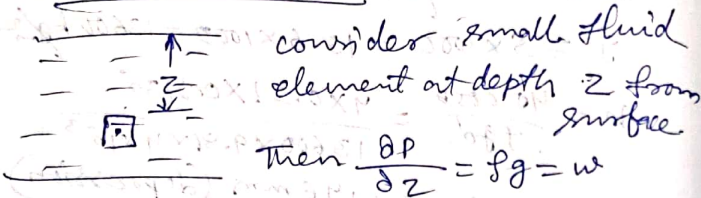 consider small fluid
element at depth z from
surface.
z
Then ∂P/∂z = ρg = w